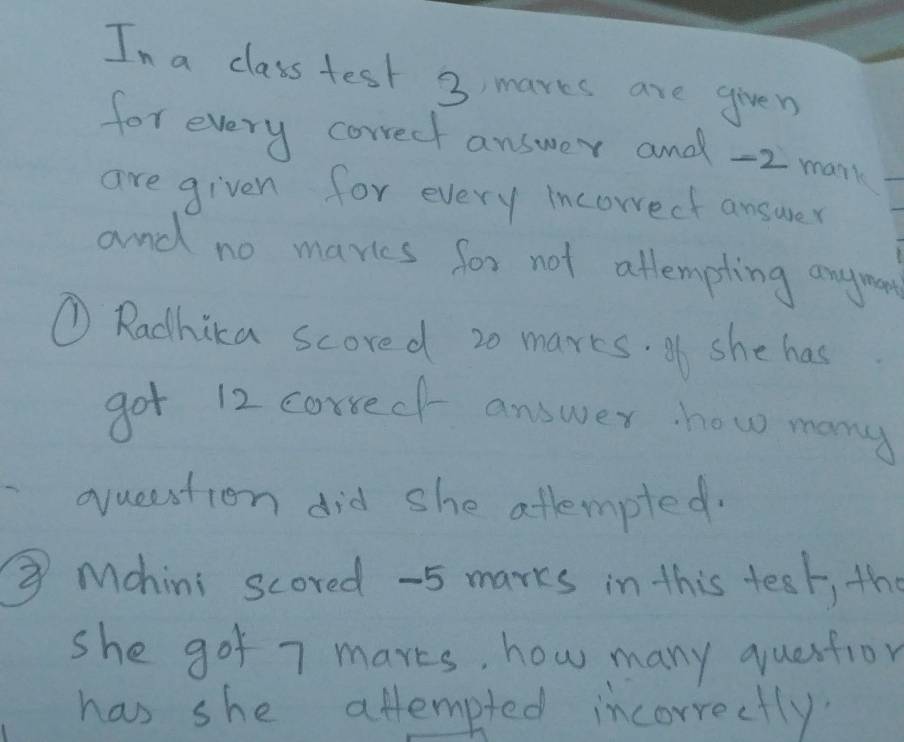 In a class test 3 marks are given
for every correct answer and -2 mark
are given for every incorrect answer
and no marks for not attempting any
① Radhika scored 20 marks. If she has
got 12 correct answer how many
queestion did she attempted.
② Mohini scored -5 marks in this test, tho
she got 7 marks. how many question
has she attempted incorrectly.